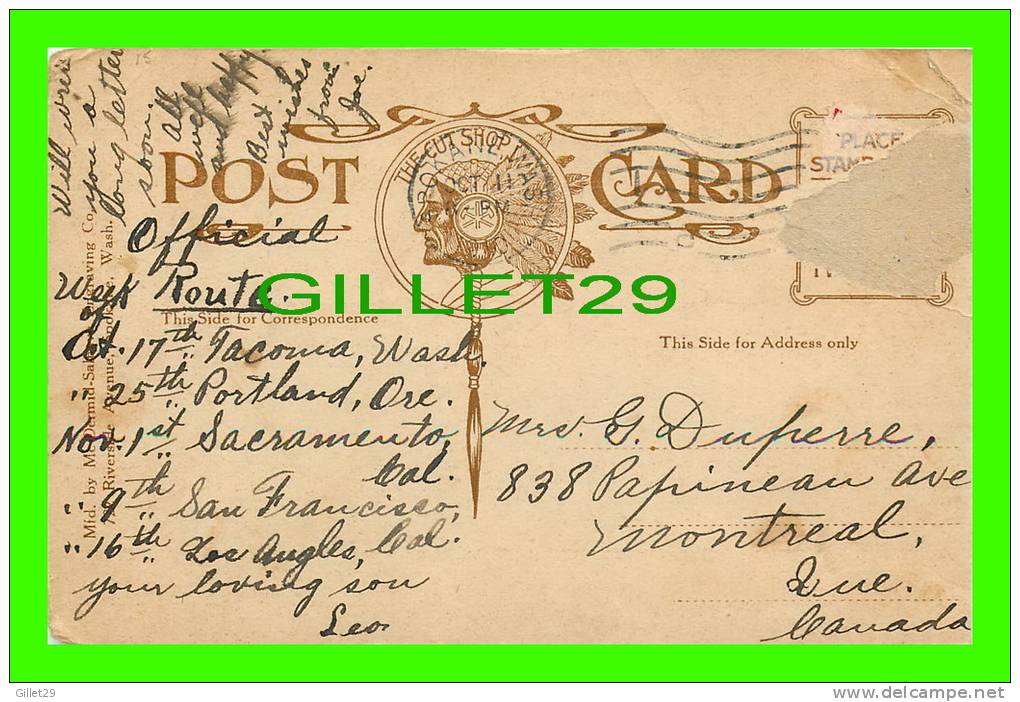 Will write
you a
long letter
soon.
All
well
and happy.
Best
wishes
from
Joe.
15
POST CARD
THE CUT SHOP
SPOKANE, WASH
OCT 11
PM
PLACE
STAMP
Official
Week Route.
of
GILLET29
This Side for Correspondence
This Side for Address only
Oct. 17th Tacoma, Wash.
" 25th Portland, Ore.
Nov. 1st Sacramento,
Cal.
" 9th San Francisco,
" 16th Los Angles, Cal.
your loving son
Leo
Mrs. G. Duperre,
838 Papineau Ave
Montreal,
Que.
Canada
Mfd. by McDermid Engraving Co.
Riverside Avenue, Wash.
Gillet29
http://www.delcampe.net